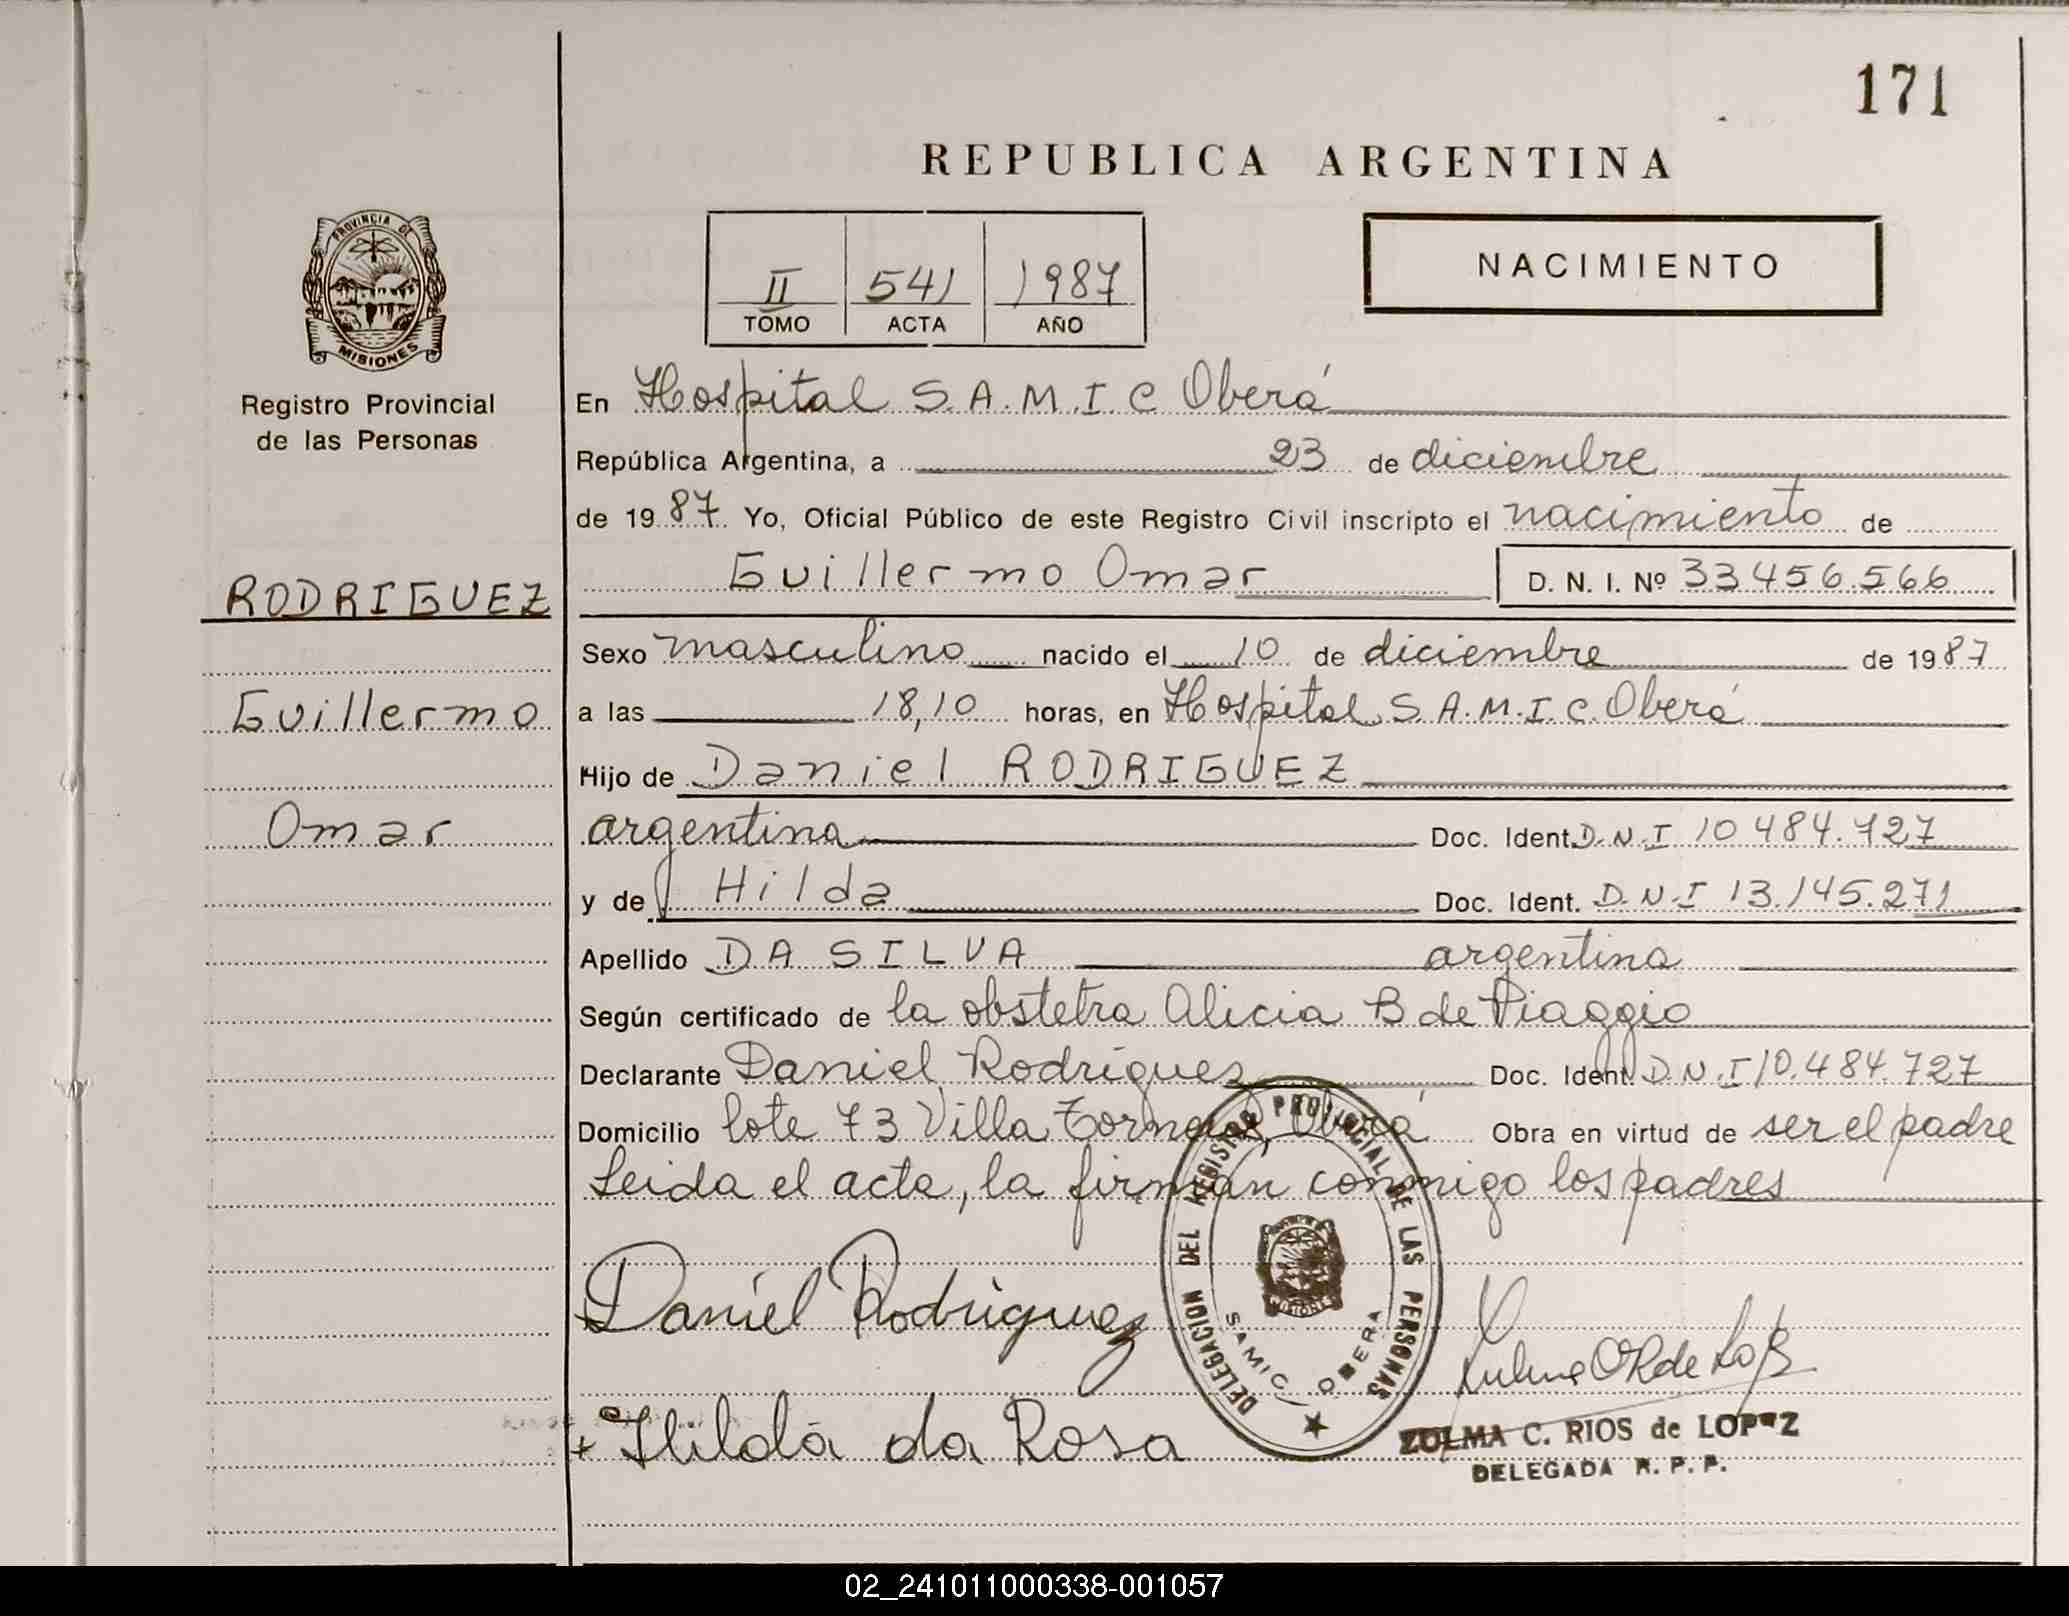 171
REPUBLICA ARGENTINA
PROVINCIA DE
MISIONES
Registro Provincial
de las Personas
II 541 1987
TOMO ACTA AÑO
NACIMIENTO
En Hospital S.A.M.I.C Oberá
República Argentina, a 23 de diciembre
de 1987. Yo, Oficial Público de este Registro Civil inscripto el nacimiento de
Guillermo Omar D. N. I. Nº 33456.566
RODRIGUEZ
Guillermo
Omar
Sexo masculino nacido el 10 de diciembre de 1987
a las 18,10 horas, en Hospital S.A.M.I.C. Oberá
Hijo de Daniel RODRIGUEZ
argentina Doc. Ident. D.N.I 10484.727
y de Hilda Doc. Ident. D.N.I 13.145.271
Apellido DA SILVA argentina
Según certificado de la obstetra Alicia B de Piaggio
Declarante Daniel Rodriguez Doc. Ident. D.N.I 10.484.727
Domicilio lote 73 Villa Oberá Obra en virtud de ser el padre
Leida el acta, la firman conmigo los padres
Daniel Rodriguez
+ Hilda da Rosa
DELEGACION DEL REGISTRO PROVINCIAL DE LAS PERSONAS
MISIONES
SAMIC OBERA
ZULMA C. RIOS de LOPEZ
DELEGADA R. P. P.
02_241011000338-001057